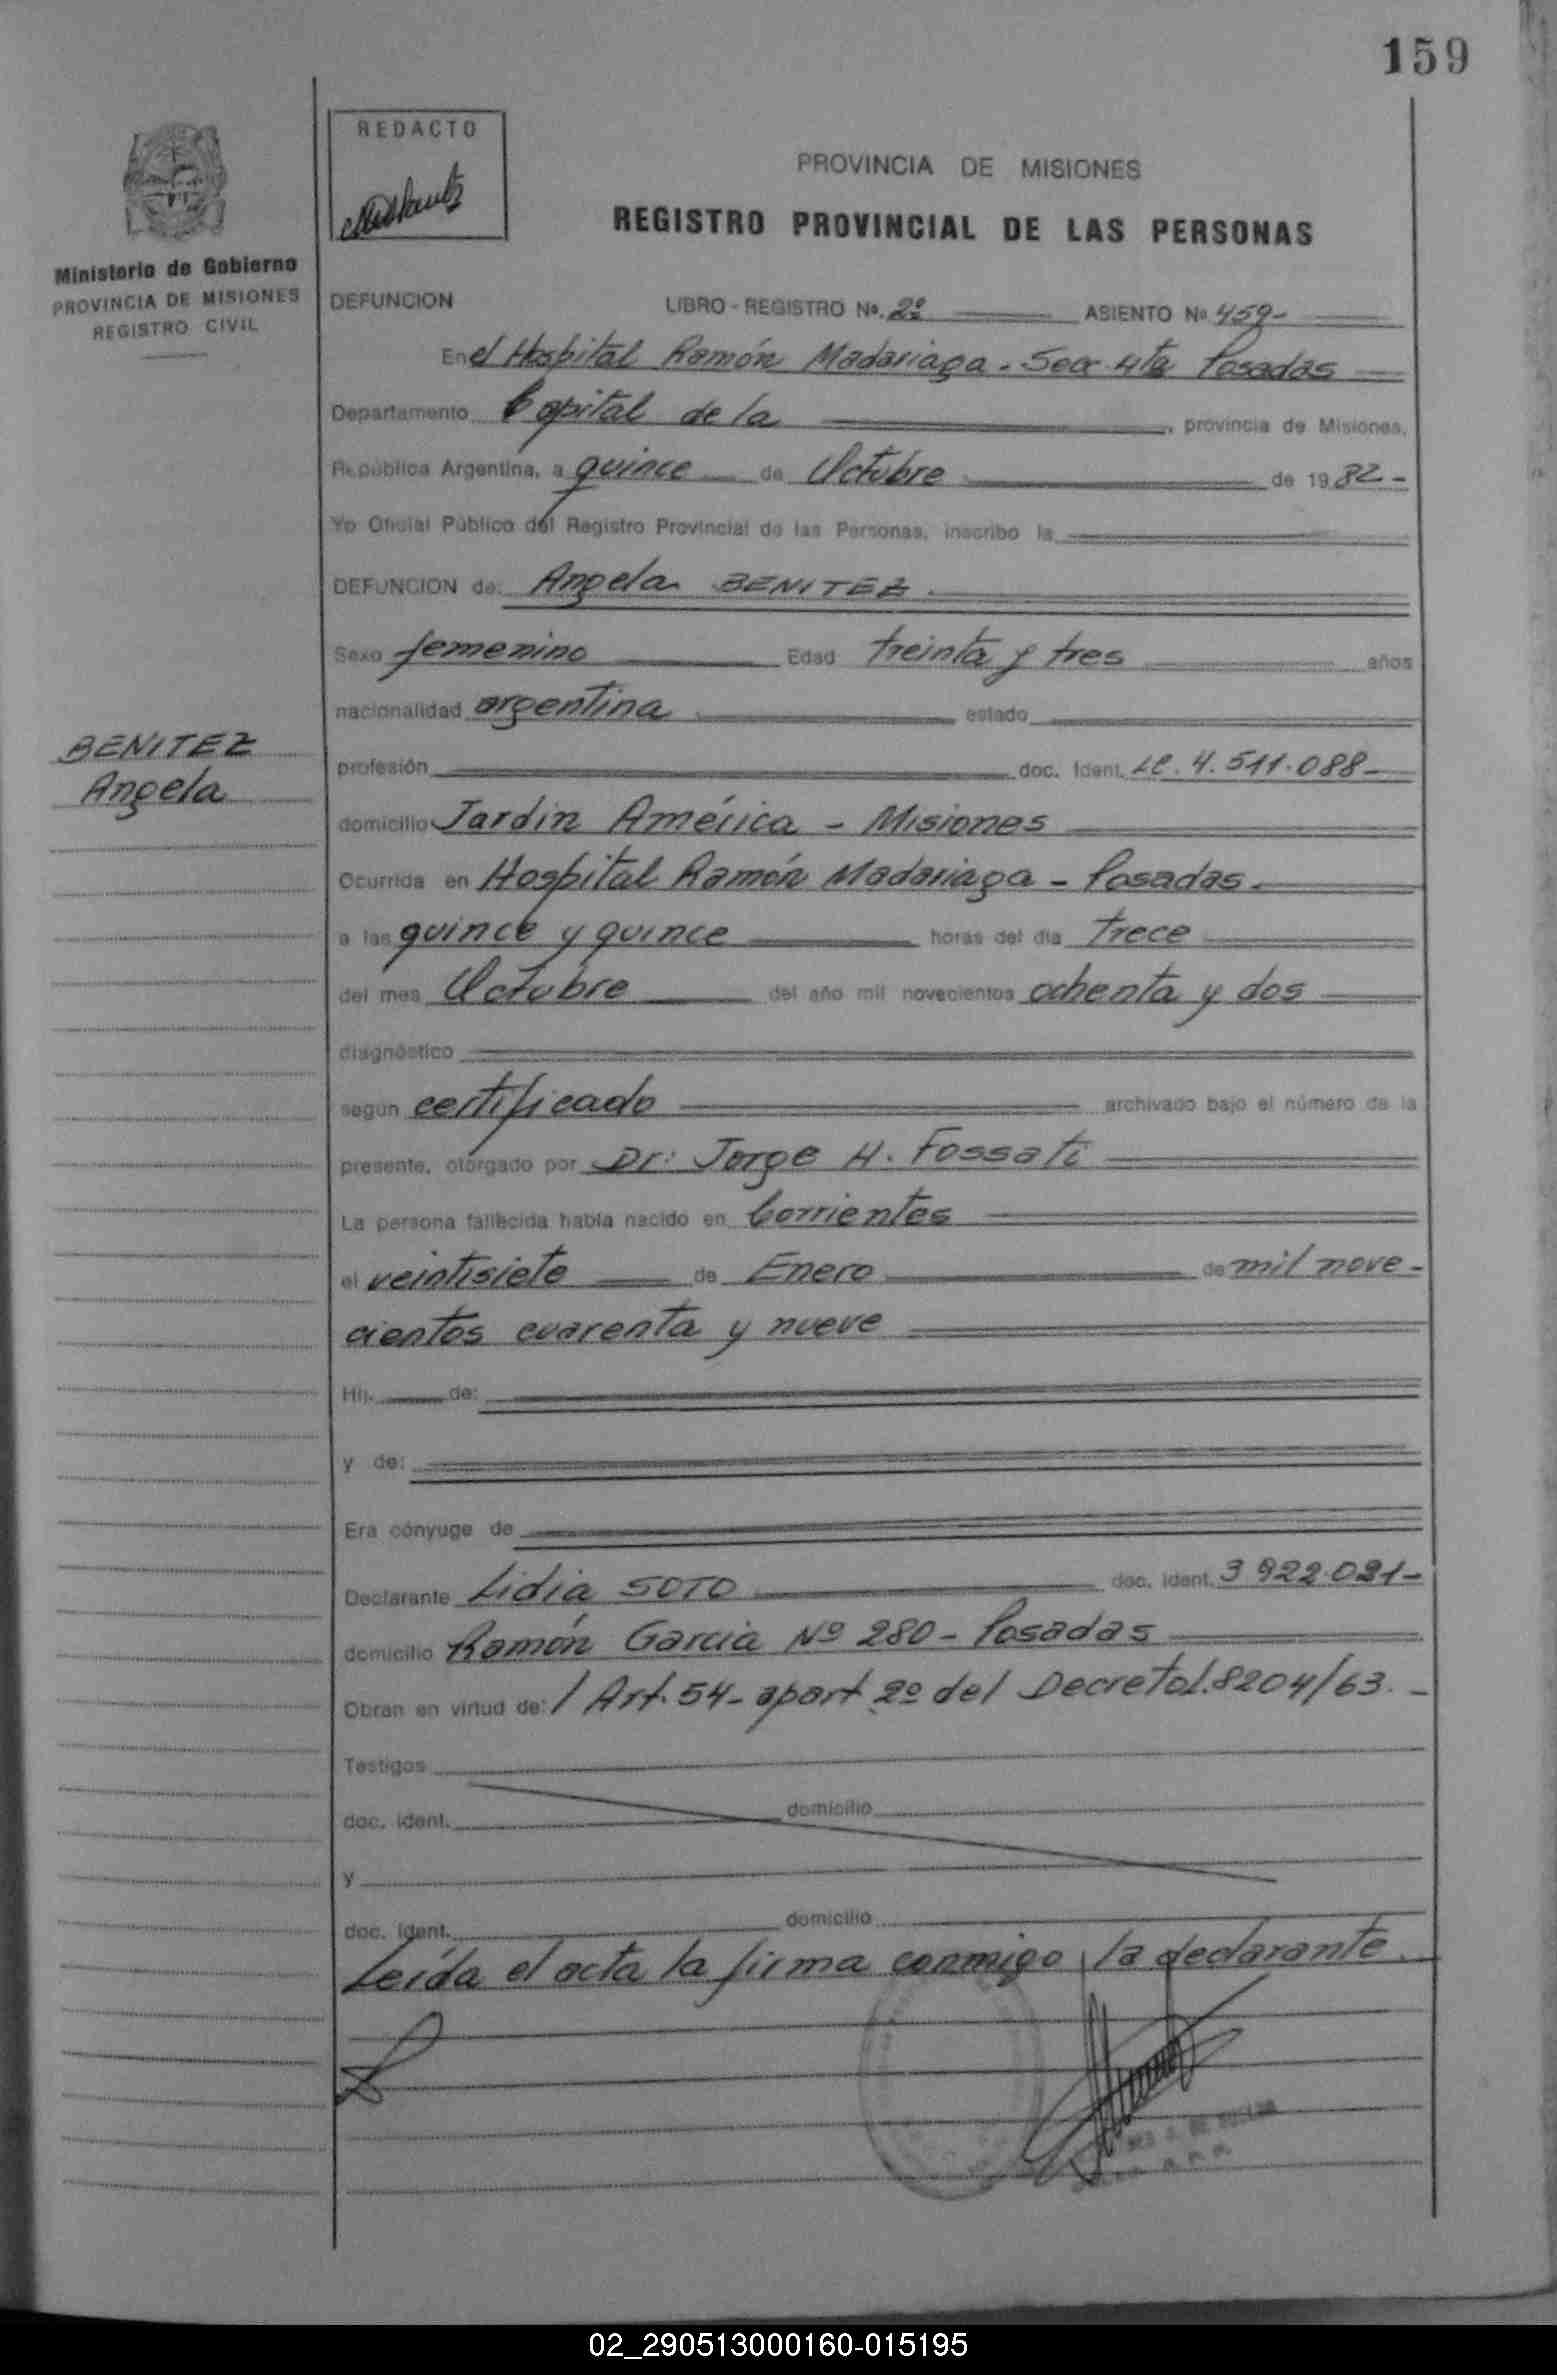 159
REDACTO
PROVINCIA DE MISIONES
REGISTRO PROVINCIAL DE LAS PERSONAS
Ministerio de Gobierno
PROVINCIA DE MISIONES
REGISTRO CIVIL
DEFUNCION LIBRO - REGISTRO No. 2º ASIENTO No 459-
En el Hospital Ramón Madariaga - Secc. 4ta Posadas
Departamento Capital de la , provincia de Misiones,
República Argentina, a quince de Octubre de 1982-
Yo Oficial Público del Registro Provincial de las Personas, inscribo la
DEFUNCION de: Angela BENITEZ.
Sexo femenino Edad treinta y tres años
nacionalidad argentina estado
BENITEZ
Angela
profesión doc. Ident. LC. 4.511.088-
domicilio Jardin América - Misiones
Ocurrida en Hospital Ramón Madariaga - Posadas.
a las quince y quince horas del día trece
del mes Octubre del año mil novecientos ochenta y dos
diagnóstico
según certificado archivado bajo el número de la
presente, otorgado por Dr: Jorge H. Fossati
La persona fallecida había nacido en Corrientes
el veintisiete de Enero de mil nove-
cientos cuarenta y nueve
Hij. de:
y de:
Era cónyuge de
Declarante Lidia SOTO doc. ident. 3 922.021-
domicilio Ramón Garcia Nº 280 - Posadas
Obran en virtud de: / Art. 54 - apart 2º del Decreto L.8204/63. -
Testigos
doc. ident. domicilio
y
doc. ident. domicilio
Leída el acta la firma conmigo, la declarante.
02_290513000160-015195